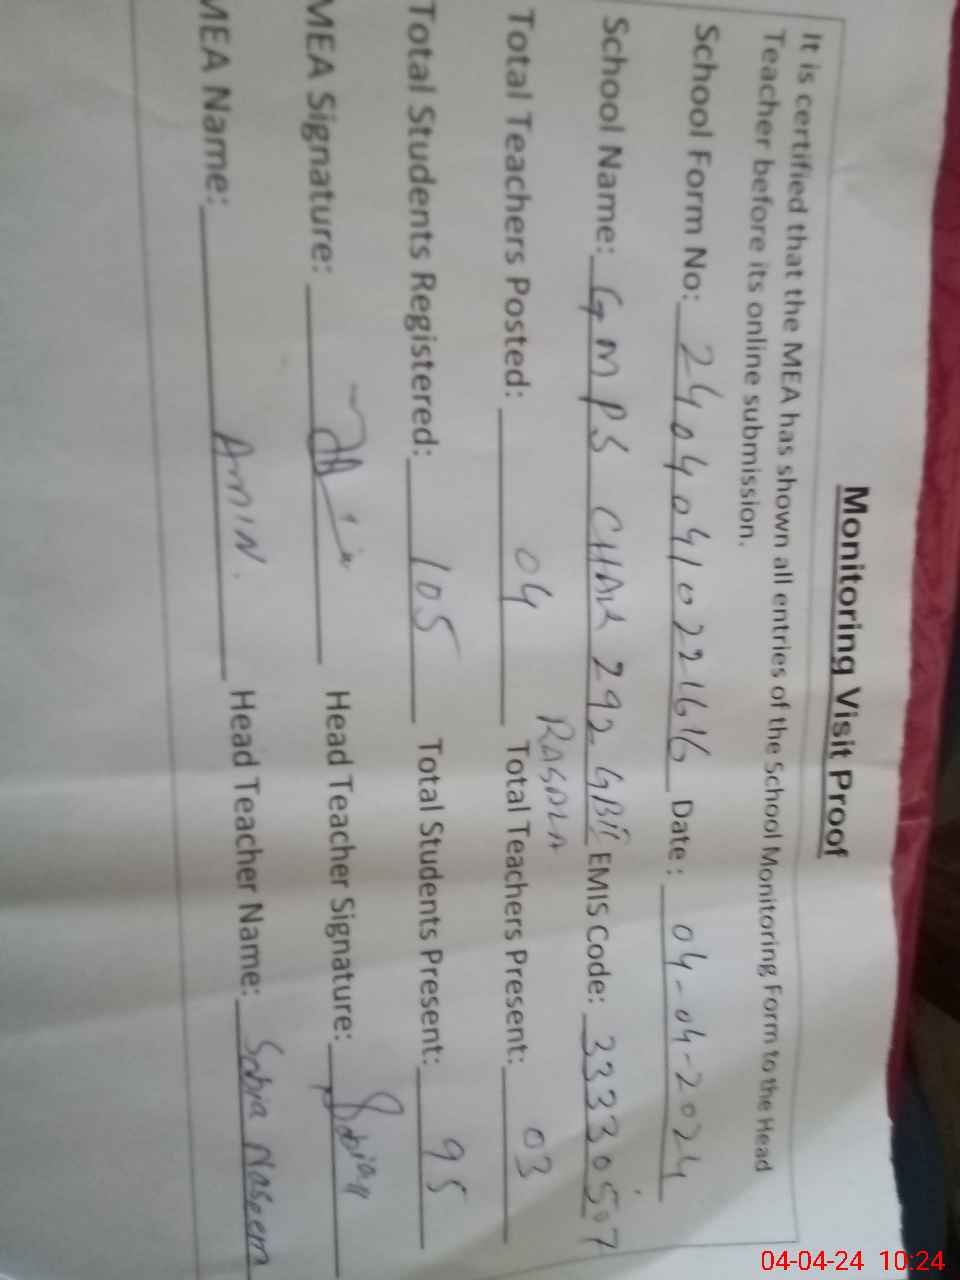 Monitoring Visit Proof
It is certified that the MEA has shown all entries of the School Monitoring Form to the Head
Teacher before its online submission.
School Form No: 2404040410221616 Date: 04-04-2024
School Name: GMPS CHAK 292 GB II EMIS Code: 33330507
RASALA
Total Teachers Posted: 04 Total Teachers Present: 03
Total Students Registered: 105 Total Students Present: 95
MEA Signature: Head Teacher Signature:
MEA Name: Amin. Head Teacher Name: Sobia Naseem
04-04-24 10:24